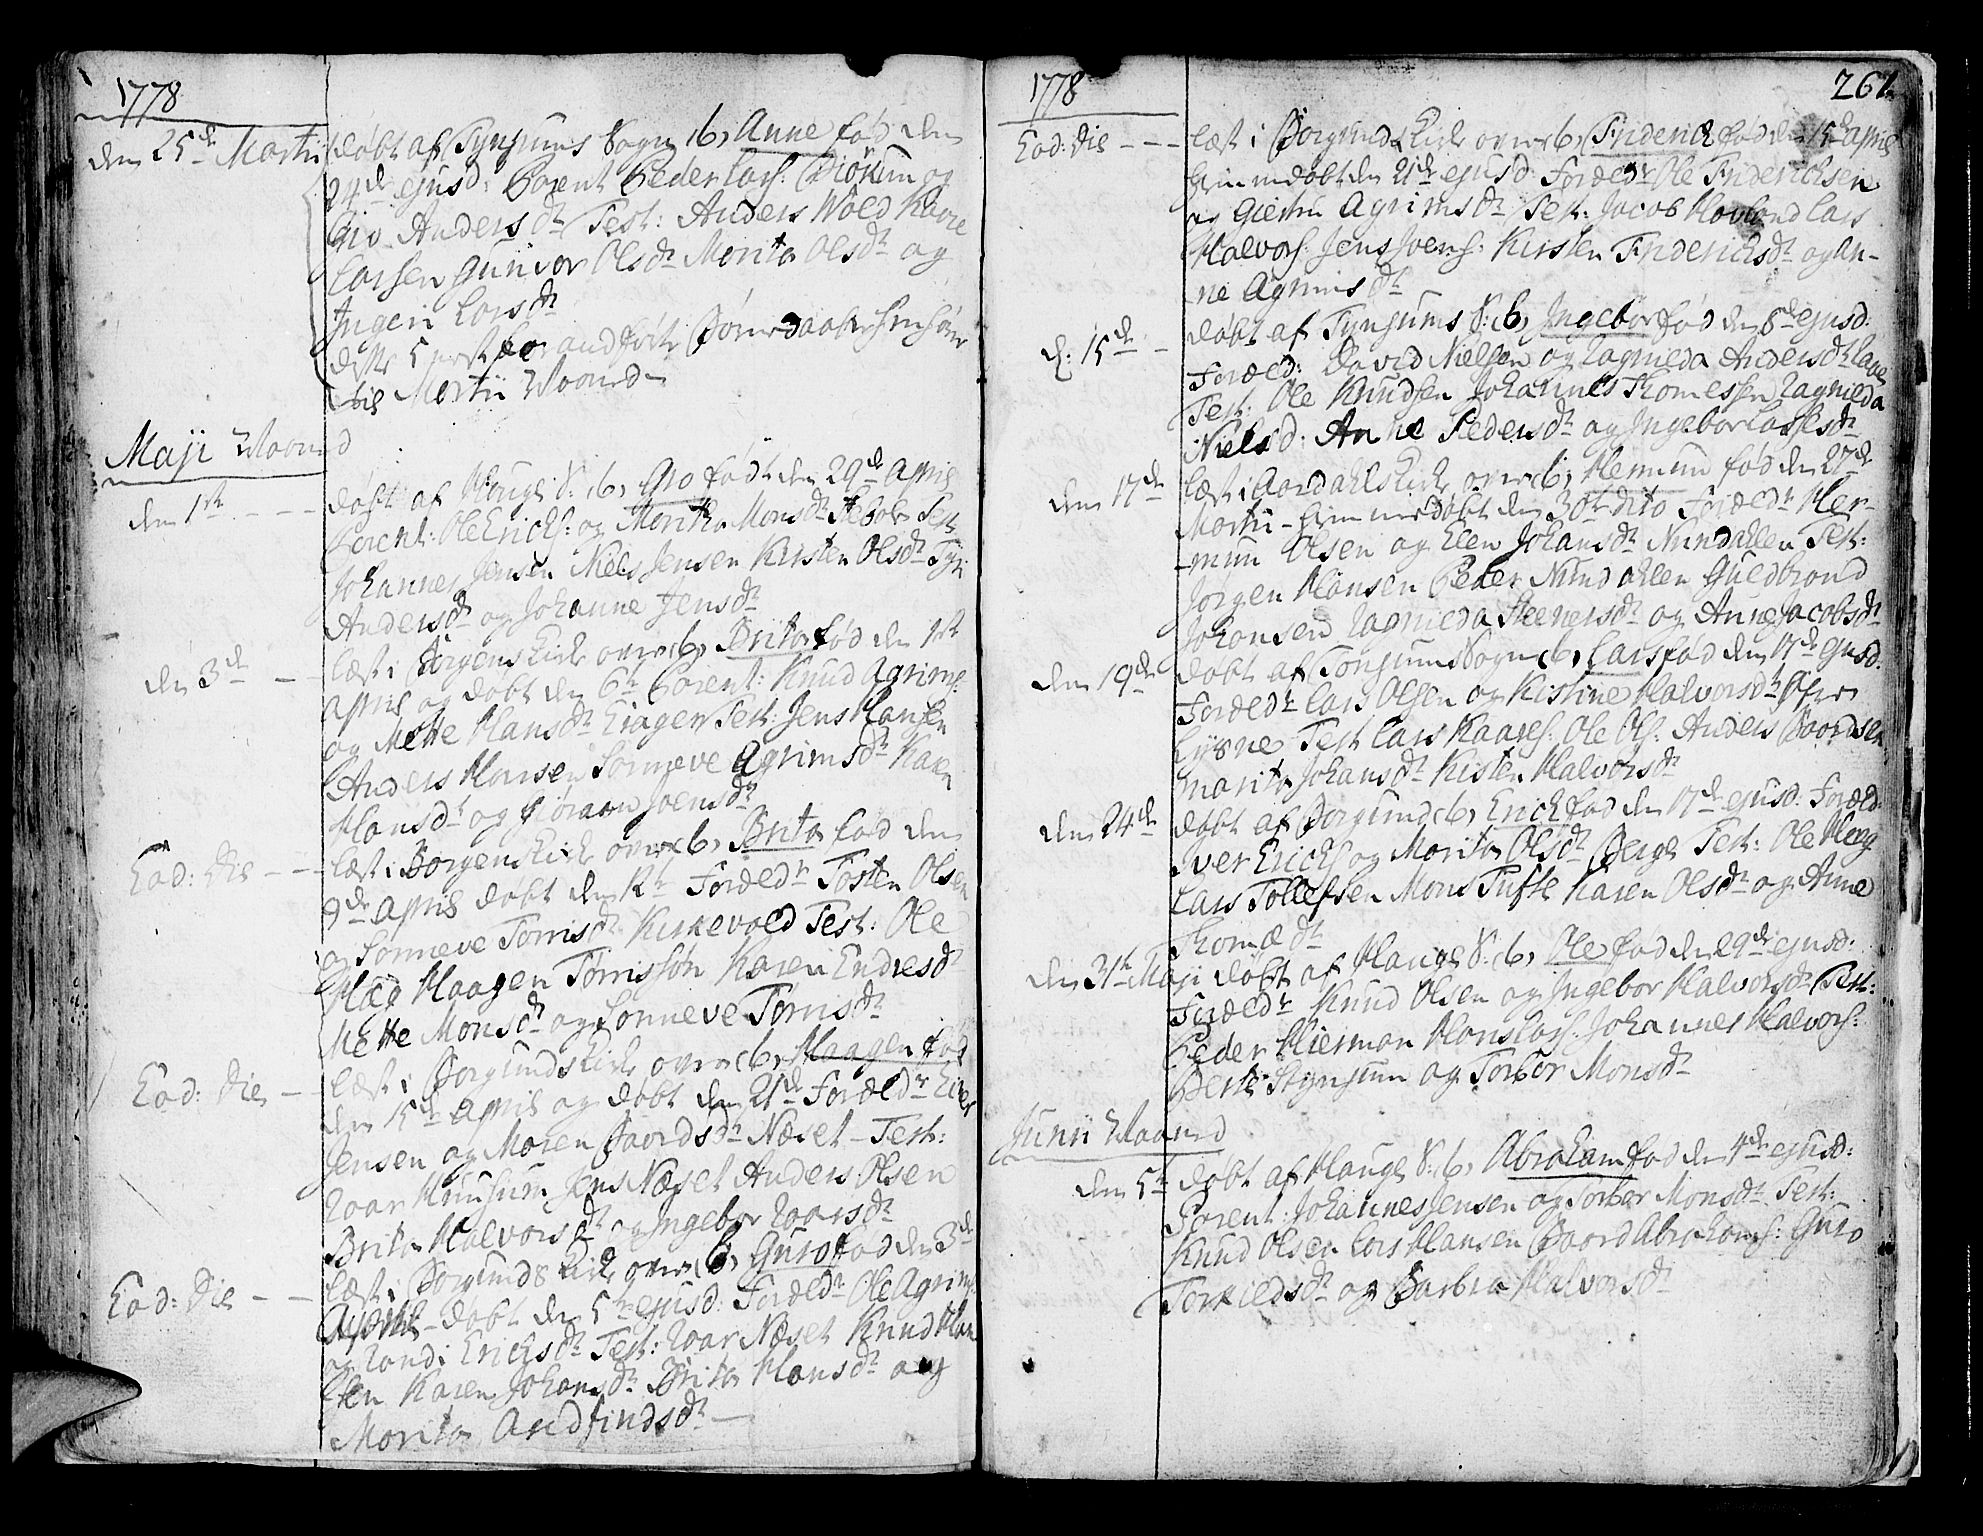 1778
den 25de Martii døbt af Tynjums Sogn (b, Anne fød den
24de ejusd: Parent Peder Lars: Biørkum og
Giv Andersdr Test: Anders Wold Kaare
Larsen Gunvor Olsdr Marita Olsdr og
Ingeri Larsdr
disse 5 
Martii Maaned
Maji Maaned
den 1ste - - - døbt af Hauge S: (b, Gro født den 29de April
Parent: Ole Erichs: og Maritha Monsdr Test
Johannes Jensen Niels Jensen Kirsten Olsdr
Andersdr og Johanne Jensdr
den 3de - - læst i Borgens Kirke over (b, Brita fød den 1ste
April og døbt den 6te Parent: Knud Agrims:
og Mette Hansdr Eiager Test: Jens Hansen
Anders Hansen Sønneve Agrimsdr Karen
Hansdr og Jørann Joensdr
Eod: Die - - læst i Borgens Kirke over (b, Brita fød den
9de April døbt den 12te Foræld: Tosten Olsen
og Sønneve Tørrisdr Kirkevold Test: Ole
Hæg Haagen Tørrissøn Karen Endresdr
Mette Monsdr og Sønneve Tørrisdr
Eod: Die - læst i Borgunds Kirke over (b, Haagen fød
den 15de April og døbt den 21de Foræld:
Jensen og Maren Baardsdr Næset - Test:
Roar Huusum Jens Næset Anders Olsen
Brita Halvorsdr og Ingebor Roarsdr
Eod: Die - - læst i Borgunds Kirke over (b, Guro fød den 3de
April - døbt den 5te ejusd: Foræld: Ole Agrims:
og Randi Erichsdr Test: Roar Næset Knud Han
sen Karen Johansdr Brita Hansdr og
Marita Andfindsdr -
1778 261
Eod: Die - - - læst i Borgunds Kirke over (b, Friderich fød den 15de April
hjemmedøbt den 21de ejusd: Foræld: Ole Friderichsen
og Giertru Agrimsdr Test: Jacob Hovland Lars
Halvors: Jens Joens: Kirsten Friderichsdr og An-
ne Agrimsdr
d: 15de - døbt af Tynjums S: (b, Ingebor fød den 8de ejusd:
Foræld: David Nielsen og Ragnilda Andersdr
Test: Ole Knudsen Johannes Thomessen Ragnilda
Nielsd: Anne Pedersdr og Ingebor Lassesdr
den 17de læst i Aardahls Kirke over (b, Hermun fød den 27de
Martii - hjemmedøbt den 30te dito Foræld: Her-
-mun Olsen og Elen Johansdr Nundahlen Test:
Jørgen Hansen Peder Nundahlen Guldbrand
Johansen Ragnilda Steenersdr og Anne Jacobsdr
den 19de døbt af Tonjums Sogn (b, Lars fød den 17de ejusd:
Foræld: Lars Olsen og Kirstine Halvorsdr Øfre
Lysne Test Lars Kaares: Ole Ols: Anders Baardsen
Marita Johansdr Kirsten Halvorsdr
den 24de døbt af Borgund (b, Erich fød den 17de ejusd: Foræld:
Iver Erichs og Marita Olsdr Berge Test: Ole Hæg
Lars Tollefsen Mons Tufte Karen Olsdr og Anne
Thomædr
den 31te Maji døbt af Hauge S: (b, Ole fød den 29de ejusd:
Foræld: Knud Olsen og Ingebor Halvorsdr Test:
Peder Hierman Hans Lars: Johannes Halvors:
Berte Stynjum og Torbor Monsdr
Junii Maaned
den 5te døbt af Hauge S: (b, Abraham fød den 4de ejusd:
Parent: Johannes Jensen og Torbor Monsdr Test:
Knud Olsen Lars Hansen Baard Abrahams: Guro
Torkieldsdr og Barbra Halvorsdr